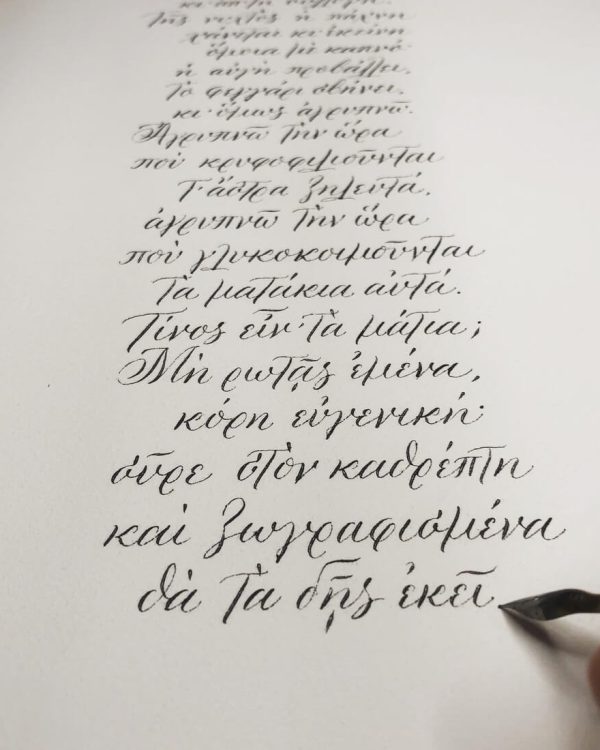 κι᾿
Τῆς νυκτὸς ἡ πάχνη
χάνεται κι᾿ ἐκείνη
ὅμοια μὲ καπνό·
ἡ αὐγὴ προβάλλει,
τὸ φεγγάρι σβήνει,
κι᾿ ὅμως ἀγρυπνῶ.
Ἀγρυπνῶ τὴν ὥρα
ποὺ κρυφοφιλιοῦνται
Τ᾿ ἄστρα ζηλευτά,
ἀγρυπνῶ τὴν ὥρα
ποὺ γλυκοκοιμοῦνται
Τὰ ματάκια αὐτά.
Τίνος εἶν᾿ τὰ μάτια;
Μὴ ρωτᾷς ἐμένα,
κόρη εὐγενική·
σῦρε στὸν καθρέπτη
καὶ ζωγραφισμένα
θὰ τὰ δῇς ἐκεῖ